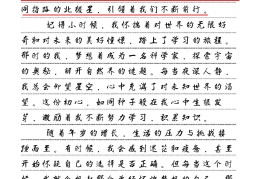 间指路的北极星,引领着我们不断前行。
记得小时候,我怀揣着对世界的无限好
奇和对未来的美好憧憬,踏上了学习的旅程。
那时的我,梦想着成为一名科学家,探索宇宙
的奥秘,解开自然界的谜题。每当夜深人静,
我总会仰望星空,心中充满了对未知世界的渴
望。这份初心,如同种子般在我心中生根发
芽,激励着我不断努力学习,追求知识。
随着年岁的增长,生活的压力与挑战接
踵而至。有时候,我会感到迷茫和疲惫,甚至
开始怀疑自己的选择是否正确。但每当这个时